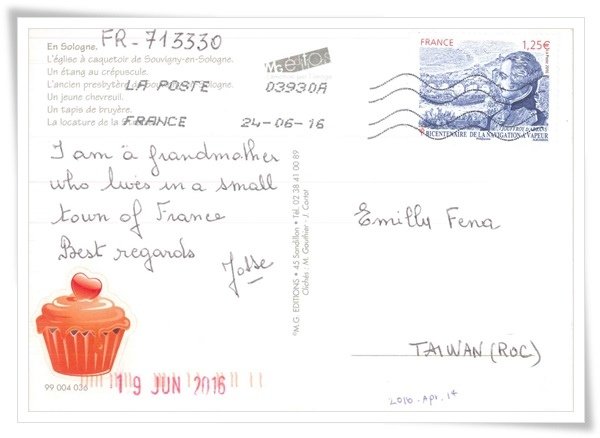 FR-713330
En Sologne.
L'église à caquetoir de Souvigny-en-Sologne.
Un étang au crépuscule.
L'ancien presbytère
Un jeune chevreuil.
Un tapis de bruyère.
La locature de la
LA POSTE 03930A
FRANCE 24-06-16
FRANCE 1,25€
BICENTENAIRE DE LA NAVIGATION À VAPEUR
I am a grandmother
who lives in a small
town of France
Best regards
Josse
©M.G. EDITIONS • 45 Sandillon • Tél. 02 38 41 00 89
Clichés : M. Gauthier - J. Cartot
Emilly Fena
TAIWAN (ROC)
99 004 036
19 JUN 2016
2016. Apr. 14